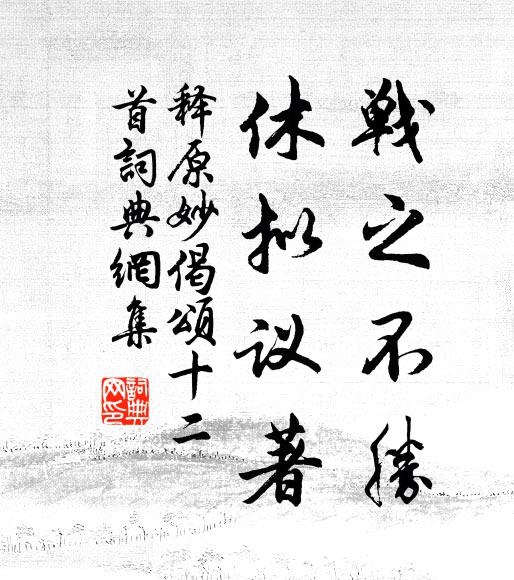 戦之不勝
休拟议著
释原妙偈頌十二
首詞典網集
詞典
网印